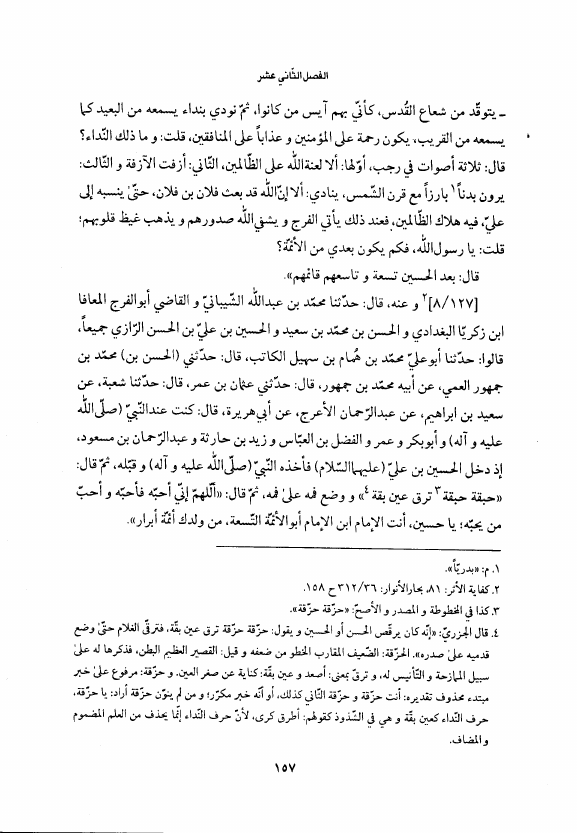 الفصل الثّاني عشر
ـ يتوقّد من شعاع القُدس، كأنّي بهم آيس من كانوا، ثمّ نودي بنداء يسمعه من البعيد كما
يسمعه من القريب، يكون رحمة على المؤمنين و عذاباً على المنافقين، قلت: و ما ذلك النّداء؟
قال: ثلاثة أصوات في رجب، أوّلها: ألا لعنة الله على الظّالمين، الثّاني: أزفت الآزفة و الثّالث:
يرون بدناً١ بارزاً مع قرن الشّمس، ينادي: ألا إنّ الله قد بعث فلان بن فلان، حتّىٰ ينسبه إلى
عليّ، فيه هلاك الظّالمين، فعند ذلك يأتي الفرج و يشفي الله صدورهم و يذهب غيظ قلوبهم؛
قلت: يا رسول الله، فكم يكون بعدي من الأئمّة؟
قال: بعد الحسين تسعة و تاسعهم قائمهم».
[٨/١٢٧]٢ و عنه، قال: حدّثنا محمّد بن عبدالله الشّيبانيّ و القاضي أبوالفرج المعافا
ابن زكريّا البغدادي و الحسن بن محمّد بن سعيد و الحسين بن عليّ بن الحسن الرّازي جميعاً،
قالوا: حدّثنا أبوعليّ محمّد بن همّام بن سهيل الكاتب، قال: حدّثني (الحسن بن) محمّد بن
جمهور العمي، عن أبيه محمّد بن جمهور، قال: حدّثني عثمان بن عمر، قال: حدّثنا شعبة، عن
سعيد بن ابراهيم، عن عبدالرّحمان الأعرج، عن أبي هريرة، قال: كنت عند النّبي (صلّى الله
عليه و آله) و أبوبكر و عمر و الفضل بن العبّاس و زيد بن حارثة و عبدالرّحمان بن مسعود،
إذ دخل الحسين بن عليّ (عليهما السّلام) فأخذه النّبيّ (صلّى الله عليه و آله) و قبّله، ثمّ قال:
«حبقة حبقة٣ ترق عين بقة٤» و وضع فمه علىٰ فمه، ثمّ قال: «أللّهمّ إنّي أحبّه فأحبّه و أحبّ
من يحبّه؛ يا حسين، أنت الإمام ابن الإمام أبوالأئمّة التّسعة، من ولدك أئمّة أبرار».
١. م: «بدريّاً».
٢. كفاية الأثر: ٨١، بحارالأنوار: ٣١٢/٣٦ ح ١٥٨.
٣. كذا في المخطوطة و المصدر و الأصحّ: «حزقة حزقة».
٤. قال الجزريّ: «إنّه كان يرقص الحسن أو الحسين و يقول: حزقّة حزقّة ترق عين بقّة، فترقىٰ الغلام حتّىٰ وضع
قدميه علىٰ صدره». الحزقّة: الضّعيف المقارب الخطو من ضعفه و قيل: القصير العظيم البطن، فذكرها له علىٰ
سبيل الممازحة و التّأنيس له، و ترق بمعنى: أصعد و عين بقّة: كناية عن صغر العين. و حزقّة: مرفوع علىٰ خبر
مبتدء محذوف تقديره: أنت حزقّة و حزقّة الثّاني كذلك، أو أنّه خبر مكرّر؛ و من لم ينوّن حزقّة أراد: يا حزقّة،
حرف النّداء كعين بقّة و هي في الشّذوذ كقولهم: أطرق كرى، لأنّ حرف النّداء إنّما يحذف من العلم المضموم
و المضاف.
١٥٧